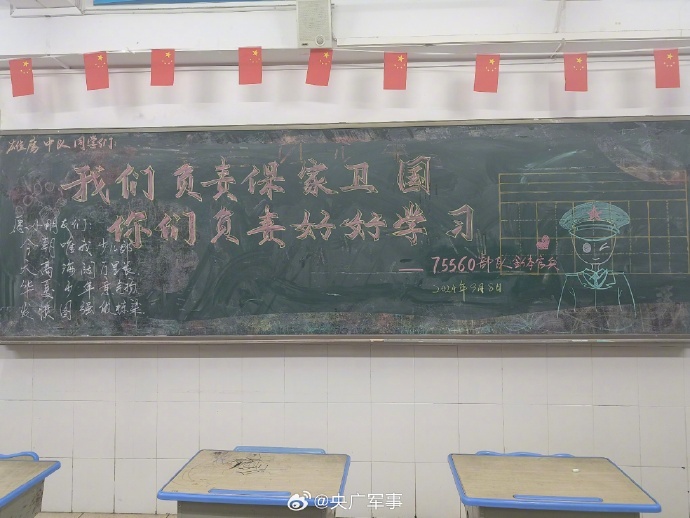 中队同学们:
我们负责保家卫国
你们负责好好学习
愿小朋友们:
今朝唯我少年郎
天高海阔
华夏少年
国强
—75560部队全体官兵
2024年9月8日
@央广军事